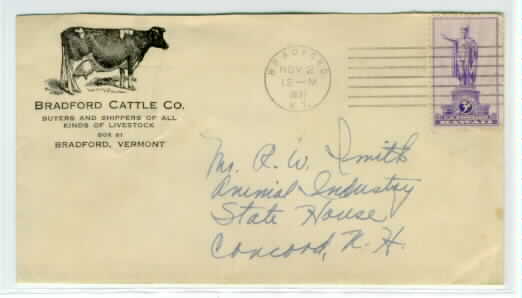 BRADFORD CATTLE CO.
BUYERS AND SHIPPERS OF ALL
KINDS OF LIVESTOCK
BOX 81
BRADFORD, VERMONT
BRADFORD
NOV 2
12-M
1937
VT.
3¢
HAWAII
Mr. R. W. Smith
Animal Industry
State House
Concord, N. H.